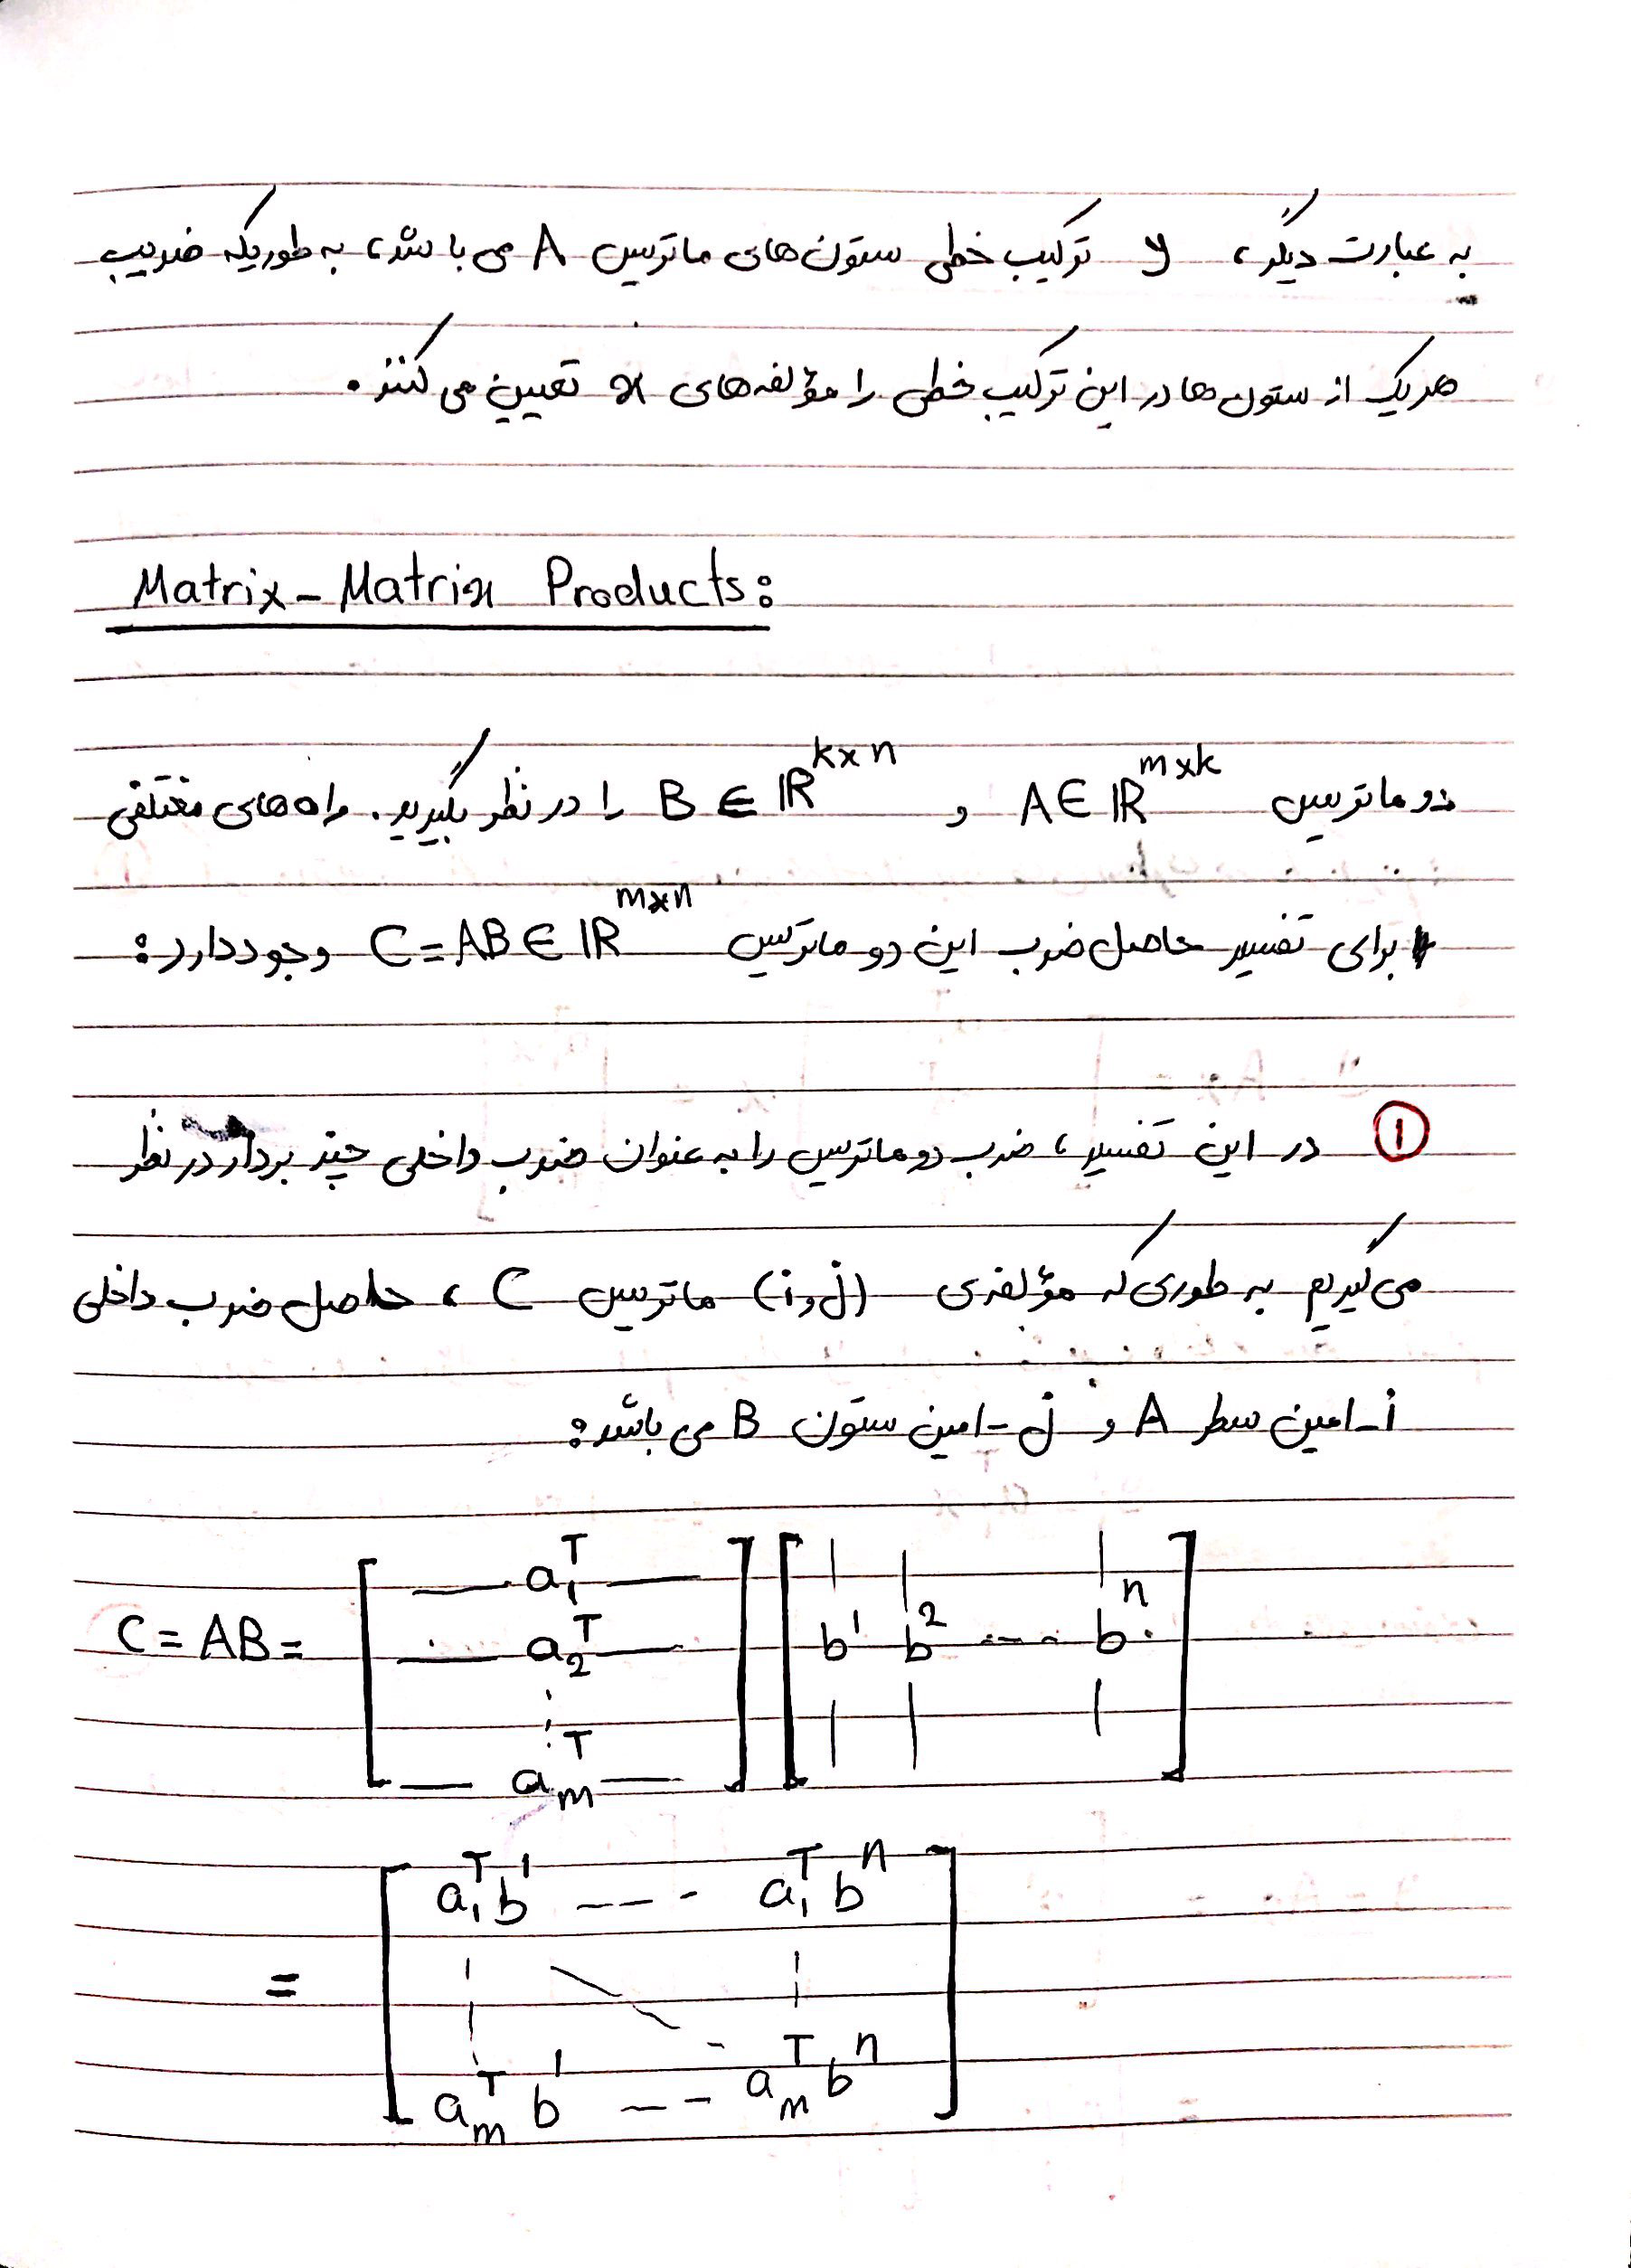 به عبارت دیگر، y ترکیب خطی ستون‌های ماتریس A می باشد، به طوریکه ضریب
هر یک از ستون ها در این ترکیب خطی را مؤلفه‌های x تعیین می کنند.
Matrix-Matrix Products:
دو ماتریس A ∈ ℝ^{m×k} و B ∈ ℝ^{k×n} را در نظر بگیرید. راه های مختلفی
برای تفسیر حاصل ضرب این دو ماتریس C = AB ∈ ℝ^{m×n} وجود دارد:
① در این تفسیر، ضرب دو ماتریس را به عنوان ضرب داخلی چند بردار در نظر
می گیریم به طوری که مؤلفه‌ی (i,j) ماتریس C، حاصل ضرب داخلی
i-امین سطر A و j-امین ستون B می باشد:
C = AB = [ — a_1^T — ; — a_2^T — ; ⋮ ; — a_m^T — ] [ b^1 b^2 --- b^n ]
= [ a_1^T b^1 --- a_1^T b^n ; ⋮ ⋱ ⋮ ; a_m^T b^1 --- a_m^T b^n ]